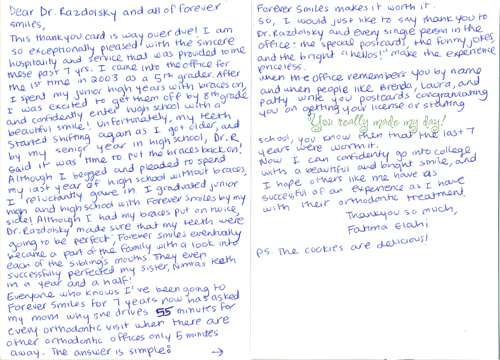 Dear Dr. Razdolsky and all of Forever
Smiles,
This thank you card is way over due! I am
so exceptionally pleased with the sincere
hospitality and service that was provided to me
these past 7 yrs. I came into the office for
the 1st time in 2003 as a 5th grader. After
I spent my junior high years with braces on,
I was excited to get them off by 8th grade
and confidently enter high school with a
beautiful smile! Unfortunately, my teeth
started shifting again as I got older, and
by my senior year in high school, Dr. R
said it was time to put the braces back on!
Although I begged and pleaded to spend
my last year of high school without braces,
I reluctantly gave in. I graduated junior
high and high school with Forever Smiles by my
side! Although I had my braces put on twice,
Dr. Razdolsky made sure that my teeth were
going to be perfect. Forever Smiles eventually
became a part of the family with a look into
each of the sibling's mouths. They even
successfully perfected my sister, Nimra's teeth
in a year and a half!
Everyone who knows I've been going to
Forever Smiles for 7 years now has asked
my mom why she drives 55 minutes for
every orthodontic visit when there are
other orthodontic offices only 5 minutes
away. The answer is simple: →
Forever Smiles makes it worth it.
So, I would just like to say thank you to
Dr. Razdolsky and every single person in the
office: the special postcards, the funny jokes,
and the bright "hellos!" make the experience
priceless.
When the office remembers you by name
and when people like Brenda, Laura, and
Patty write you postcards congratulating
you on getting your license or starting
You really made my day!
school, you know then that the last 7
years were worth it.
Now I can confidently go into college
with a beautiful and bright smile, and
I hope others like me have as
succesful of an experience as I have
with their orthodontic treatment.
Thank you so much,
Fatima Elahi
P.S. The cookies are delicious!